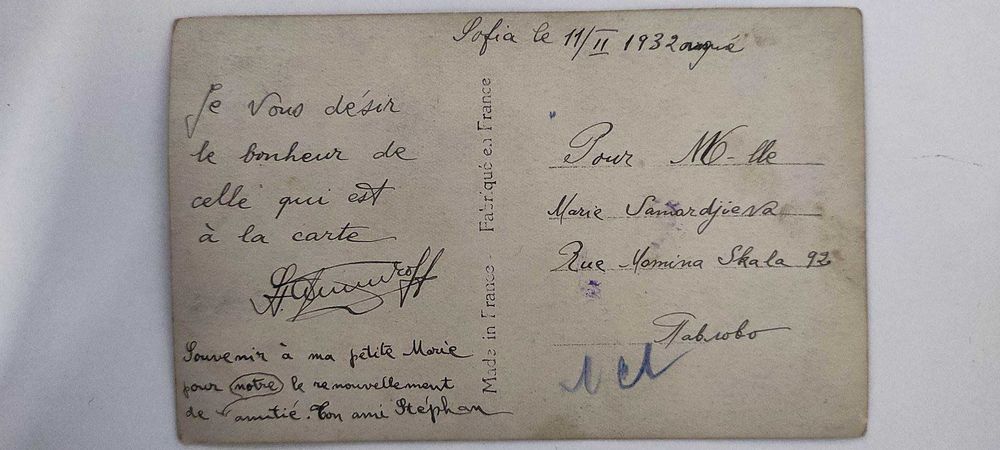 Sofia le 11/II 1932
Je vous désir
le bonheur de
celle qui est
à la carte
Souvenir à ma petite Marie
pour notre le renouvellement
de amitié. Ton ami Stéphan
Made in France - Fabriqué en France
Pour M-lle
Marie Samardjieva
Rue Momina Skala 92
Павлово